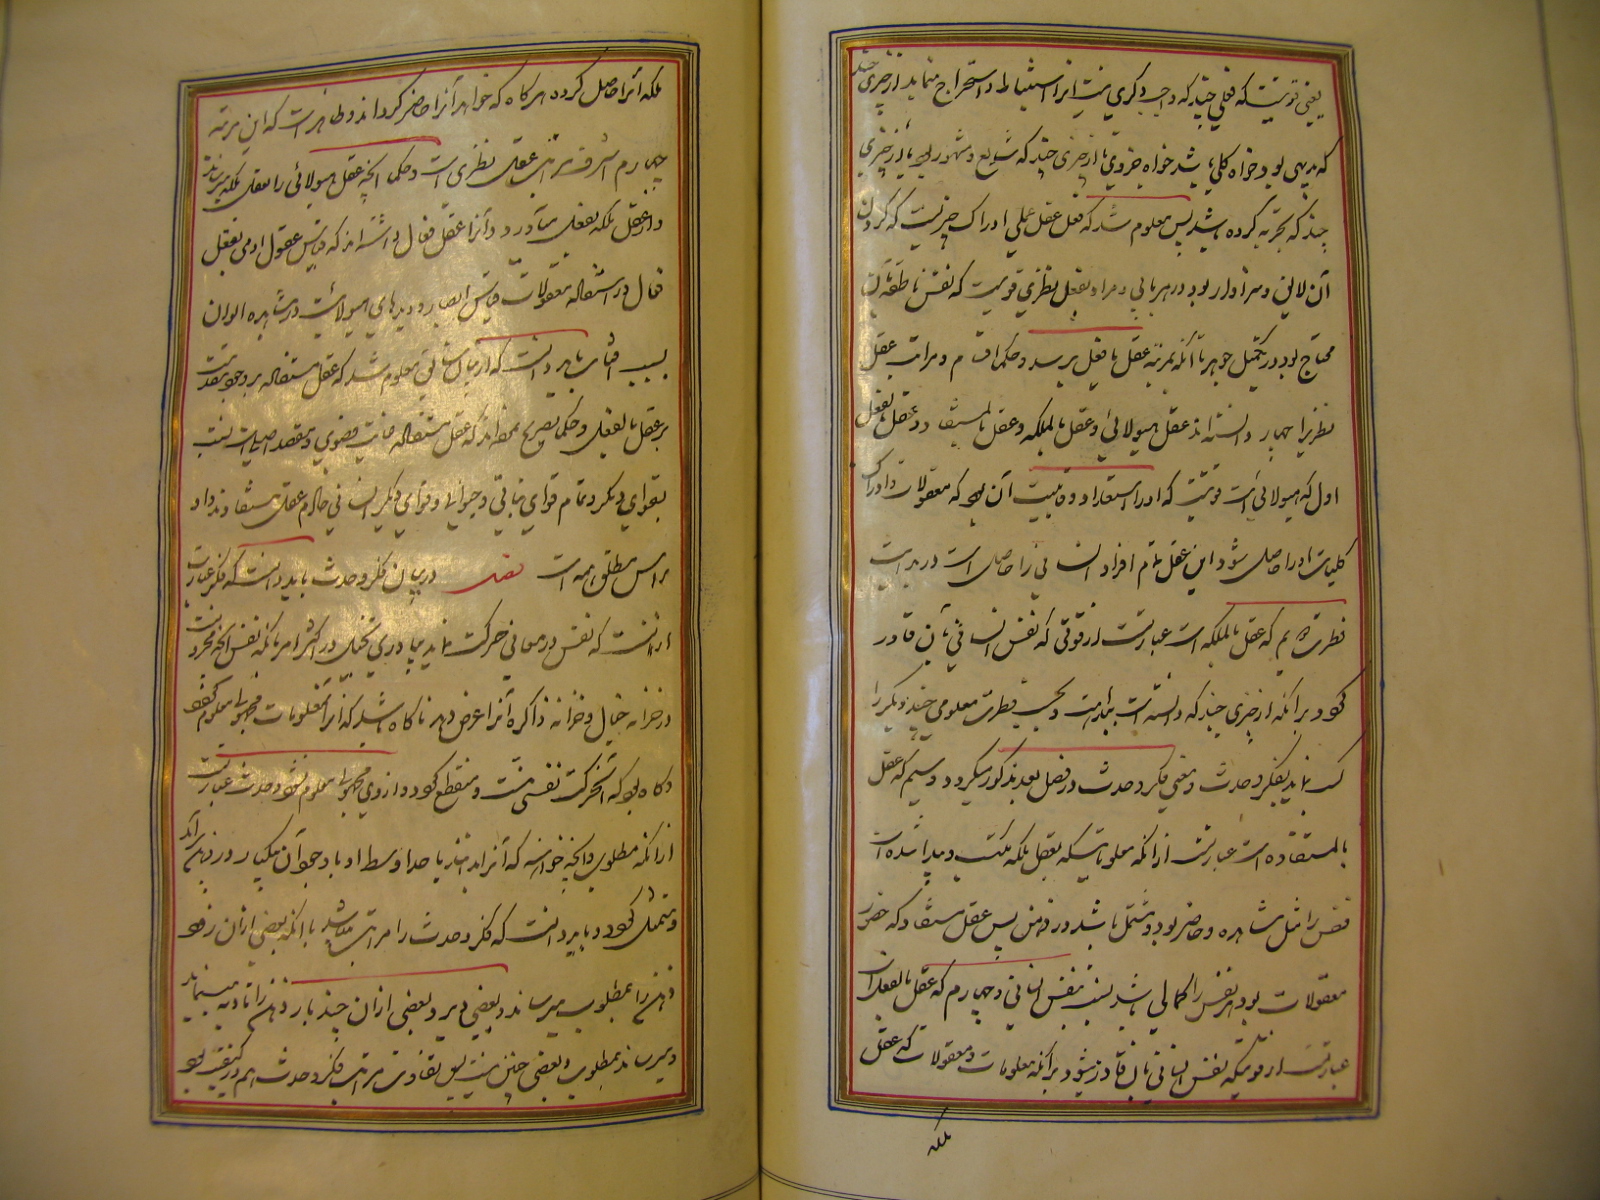 یعنی قوتیست که فعلی چند که واجب و کری نیست آنرا استنباط و استخراج مینماید از چیزی چند
که بدیهی بود خواه کلی باشد خواه جزوی یا از چیزی چند که شایع و مشهور بود یا از چیزی
چند که تجربه کرده باشد پس معلوم شد که فعل عقل عملی ادراک چیزیست که کردن
آن لایق و سزاوار بود در هر بابی و مراد بعقل نظری قوتیست که نفس ناطقه بآن
محتاج بود در تکمیل جوهر تا آنکه بمرتبه عقل بالفعل برسد و حکما اقسام و مراتب عقل
نظریرا چهار دانسته اند عقل هیولائی و عقل بالملکه و عقل بالمستفاد و عقل بالفعل
اول که هیولائی است قوتیست که او را استعداد و قابلیت آن بود که معقولات و ادراک
کلیات او را حاصل شود و این عقل تمام افراد انسانی را حاصل است در بدایت
فطرت دویم که عقل بالملکه است عبارتست از قوتی که نفس انسانی بآن قادر
گردد بر آنکه از چیزی چند که دانسته است ببداهت و بحسب فطرت معلومی چند دیگر را
کسب نماید بفکر و حدث و معنی فکر و حدث در فصل بعد مذکور میگردد و سیم که عقل
بالمستفاده است عبارتست از آنکه معلوماتیکه بعقل بالملکه مکتسب و پیدا شده است
نفس را مثل مشاهده و حاضر بود و متمثل باشد در ذهن پس عقل مستفاد که حضور
معقولات بود در نفس را کمالی باشد بنسبت بنفس انسانی و چهارم که عقل بالفعل است
عبارتست از قوتیکه نفس انسانی بآن قادر میشود بر آنکه معلومات و معقولات که عقل
بلکه
بلکه آنرا حاصل کرده هرگاه که خواهد آنرا حاضر گرداند و ظاهر است که این مرتبه
چهارم اشرف مراتب عقل نظری است و حکما آنچه عقل هیولائی را بعقل بلکه میرساند
و از عقل بلکه بفعل می‌آورد آنرا عقل فعال دانسته اند که قیاس عقول آدمی بعقل
فعال در استفاده معقولات قیاس ابصار و دیدهای هیولائیست در مشاهده الوان
بسبب آفتاب باید دانست که از بیان سابق معلوم شد که عقل مستفاد بر وجود متقدمست
بر عقل بالفعل و حکما تصریح نموده اند که عقل مستفاد غایت قصوی و مقصد اصلیست نسبت
بقوای دیگر و تمام قوای نباتی و حیوانی و قوای دیگر انسانی خادم عقل مستفادند و او
رئیس مطلق همه است فصل در بیان فکر و حدث باید دانست که فکر عبارت
از آنست که نفس در معانی حرکت نماید بیاوری تخیل در اکثر امر تا آنکه نفس آنچه مخزونست
در خزانه خیال و خزانه ذاکره آنرا عرض دهد ناگاه باشد که از آن معلومات مجهولها معلوم گردد
و گاه بود که آن حرکت نفس نیست و منقطع گردد و از وی مجهولها معلوم نشود و حدث عبارت
از آنکه مطلوبی و آنچه خواسته که آنرا بداند یا حد اوسط او با وجود آن یکبار در ذهن درآید
و متمثل گردد و باید دانست که فکر و حدث را مراتب باشد با آنکه بعضی از آن زود
ذهن را بمطلوب میرساند و بعضی دیر و بعضی از آن چند بار ذهن را تادیه مینماید
و میرساند بمطلوب و بعضی چنین نیست پس تفاوت مراتب فکر و حدث هم در کیفیت بود